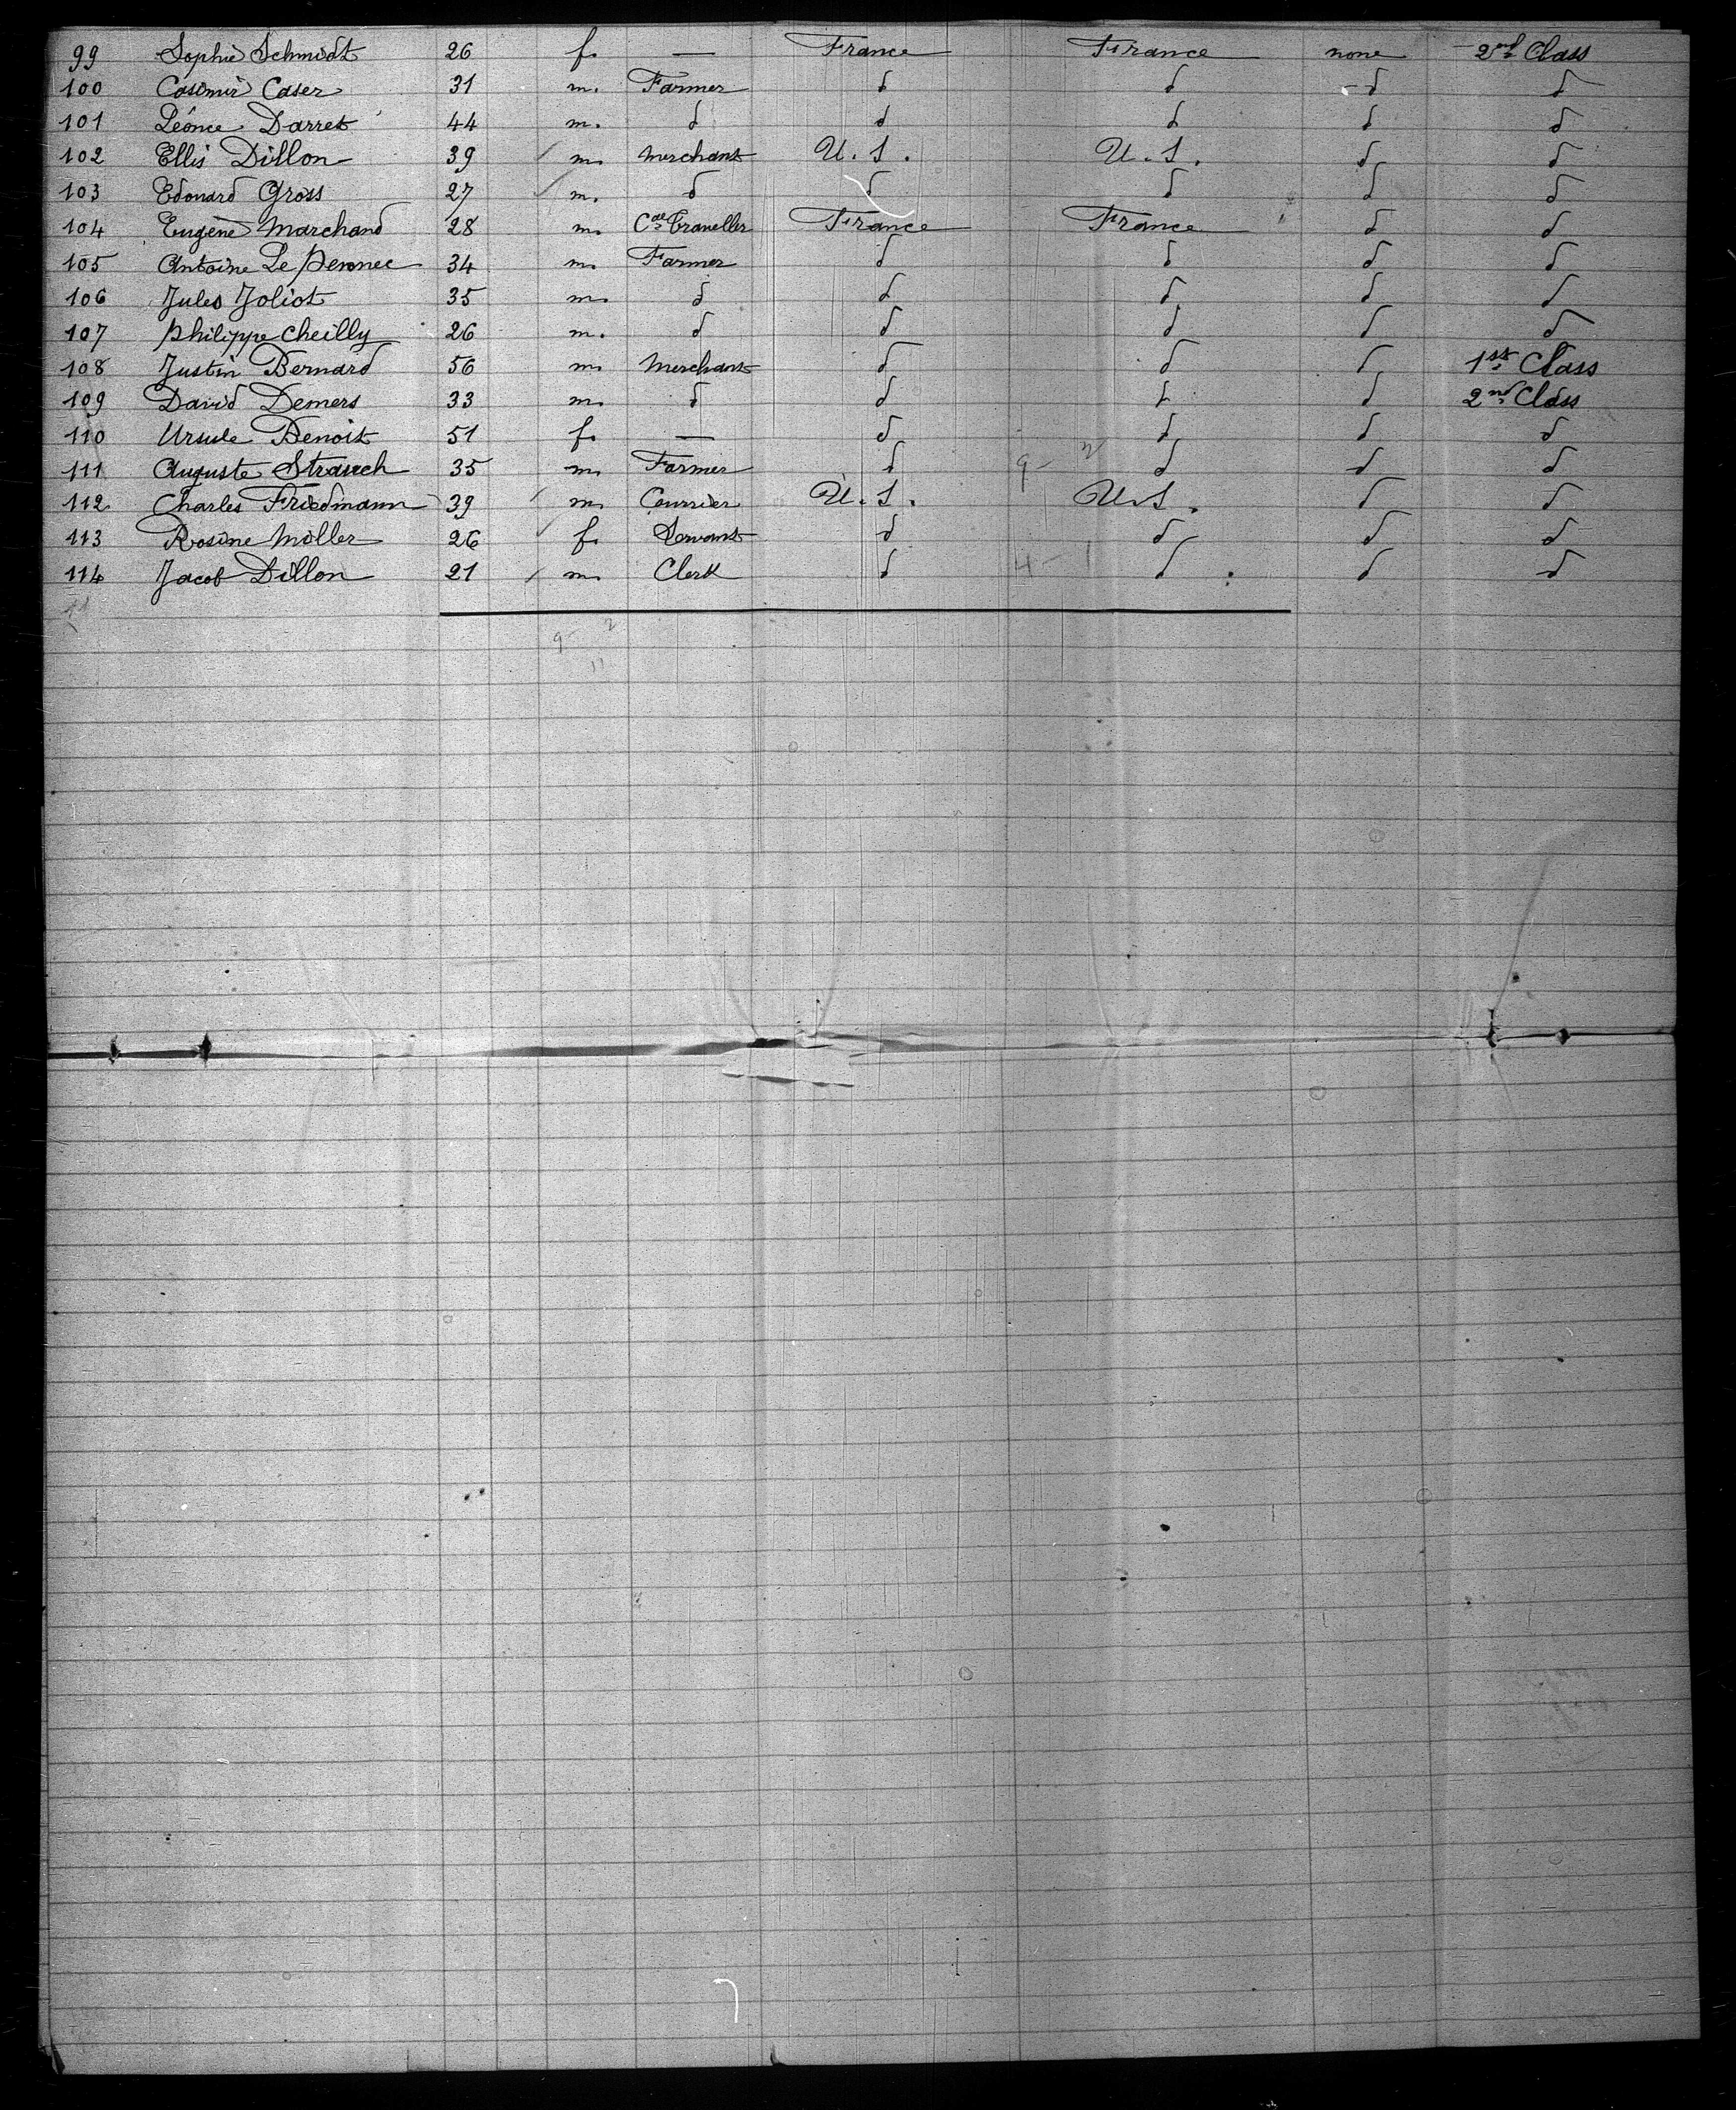 99 Sophie Schmidt 26 f. — France France none 2nd Class
100 Casimir Caser 31 m. Farmer d d d d
101 Léonce Darret 44 m. d d d d d
102 Ellis Dillon 39 m. merchant U.S. U.S. d d
103 Edouard Gross 27 m. d d d d d
104 Eugène Marchand 28 m. Cal Traveller France France d d
105 Antoine Le Pennec 34 m. Farmer d d d d
106 Jules Joliot 35 m. d d d d d
107 Philippe Cheilly 26 m. d d d d d
108 Justin Bernard 56 m. Merchant d d d 1st Class
109 David Demers 33 m. d d d d 2nd Class
110 Ursule Benoit 51 f. — d d d d
111 Auguste Strauch 35 m. Farmer d 9 - 2 d d d
112 Charles Friedmann 39 m. Courrier U.S. U.S. d d
113 Rosine Möller 26 f. Servant d d d d
114 Jacob Dillon 21 m. Clerk d 4 - 1 d d d
9 - 2
11